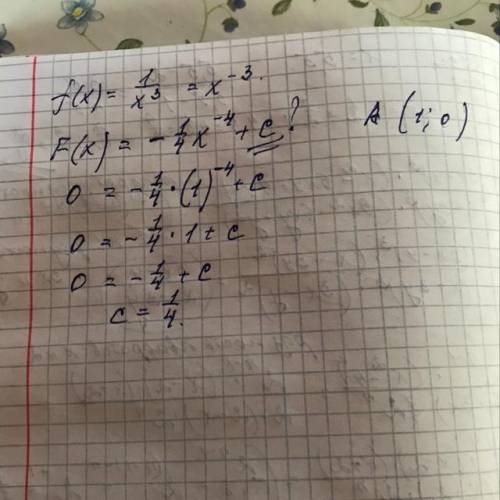 f(x) = 1/x³ = x⁻³.
F(x) = -1/4 x⁻⁴ + C ? A (1; 0)
0 = -1/4 · (1)⁻⁴ + C
0 = -1/4 · 1 + C
0 = -1/4 + C
C = 1/4.